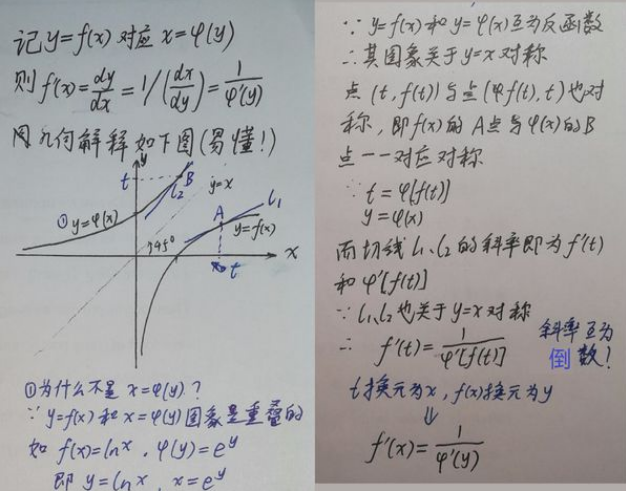 记y=f(x)对应x=φ(y)
则f'(x)=dy/dx=1/(dx/dy)=1/φ'(y)
用几何解释如下图(易懂!)
y
t
B
l₂
y=x
①y=φ(x)
A
l₁
y=f(x)
45°
x
t
①为什么不是x=φ(y)?
∵y=f(x)和x=φ(y)图象是重叠的
如f(x)=lnx,φ(y)=e^y
即y=lnx,x=e^y
∵y=f(x)和y=φ(x)互为反函数
∴其图象关于y=x对称
点(t,f(t))与点(φf(t),t)也对
称,即f(x)的A点与φ(x)的B
点一一对应对称
∵t=φ[f(t)]
y=φ(x)
而切线l₁、l₂的斜率即为f'(t)
和φ'[f(t)]
∵l₁、l₂也关于y=x对称
∴f'(t)=1/φ'[f(t)]
斜率互为
倒数!
t换元为x,f(x)换元为y
⇓
f'(x)=1/φ'(y)